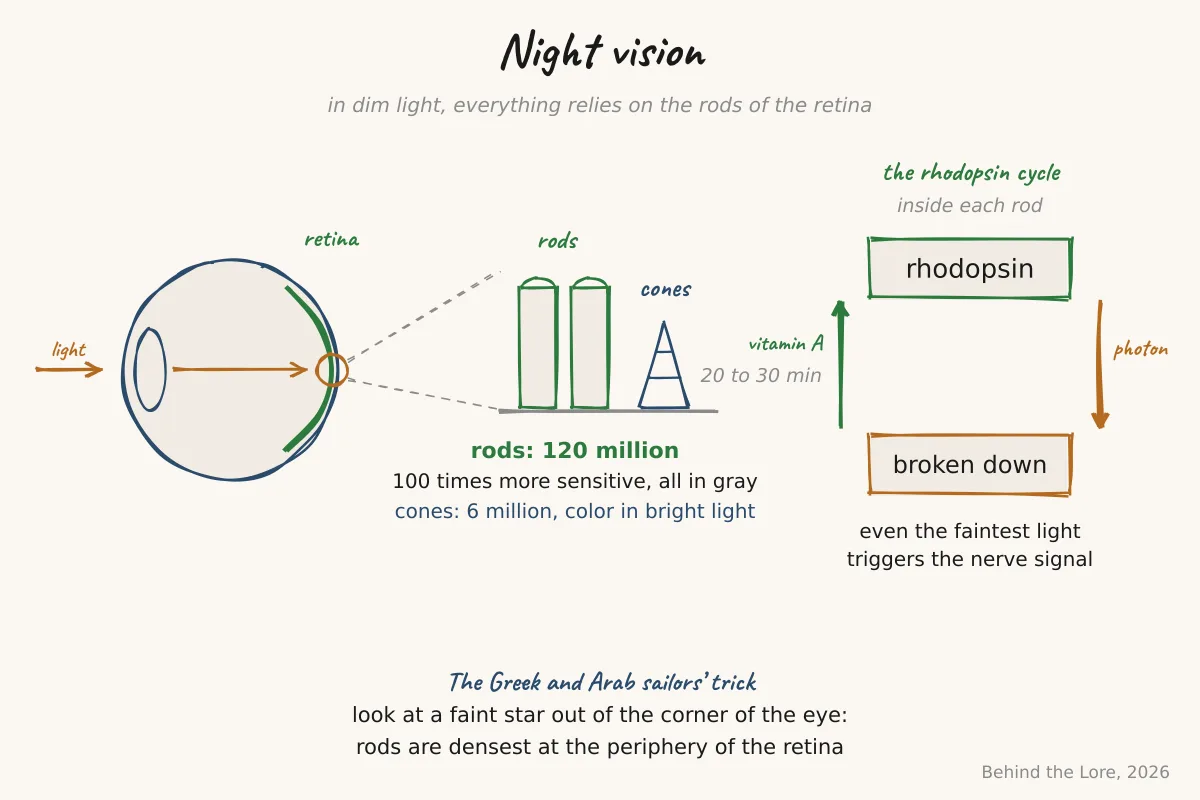 Night vision
in dim light, everything relies on the rods of the retina
the rhodopsin cycle
inside each rod
retina
rods
cones
light
rhodopsin
vitamin A
20 to 30 min
photon
broken down
rods: 120 million
100 times more sensitive, all in gray
cones: 6 million, color in bright light
even the faintest light
triggers the nerve signal
The Greek and Arab sailors’ trick
look at a faint star out of the corner of the eye:
rods are densest at the periphery of the retina
Behind the Lore, 2026